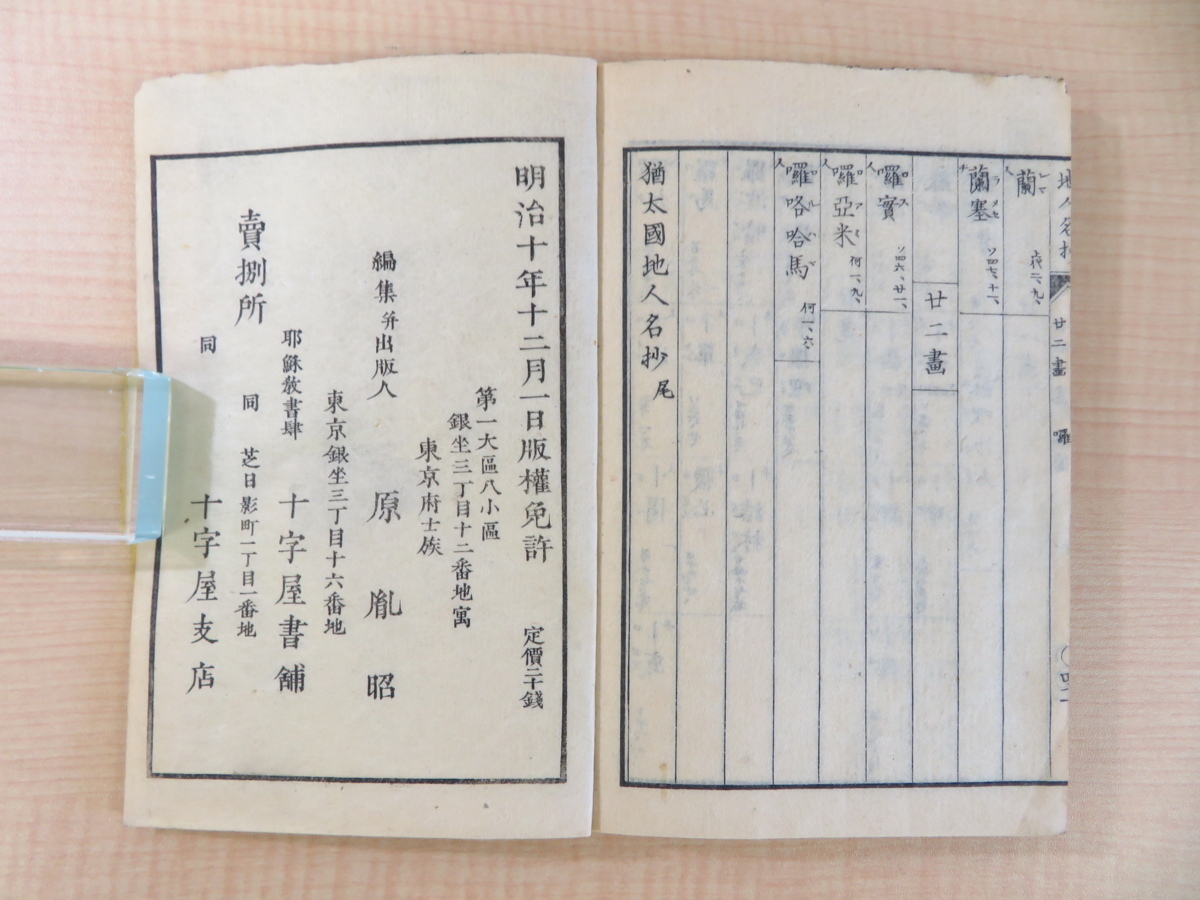 地人名抄 廿二畫 囉
蘭
蘭塞
廿二畫
囉實
囉亞米
囉咯哈馬
猶太國地人名抄尾
明治十年十二月一日版權免許 定價二十錢
第一大區八小區
銀坐三丁目十二番地寓
東京府士族
編集并出版人 原胤昭
東京銀坐三丁目十六番地
耶穌教書肆 十字屋書舖
賣捌所
同 芝日影町一丁目一番地
同 十字屋支店